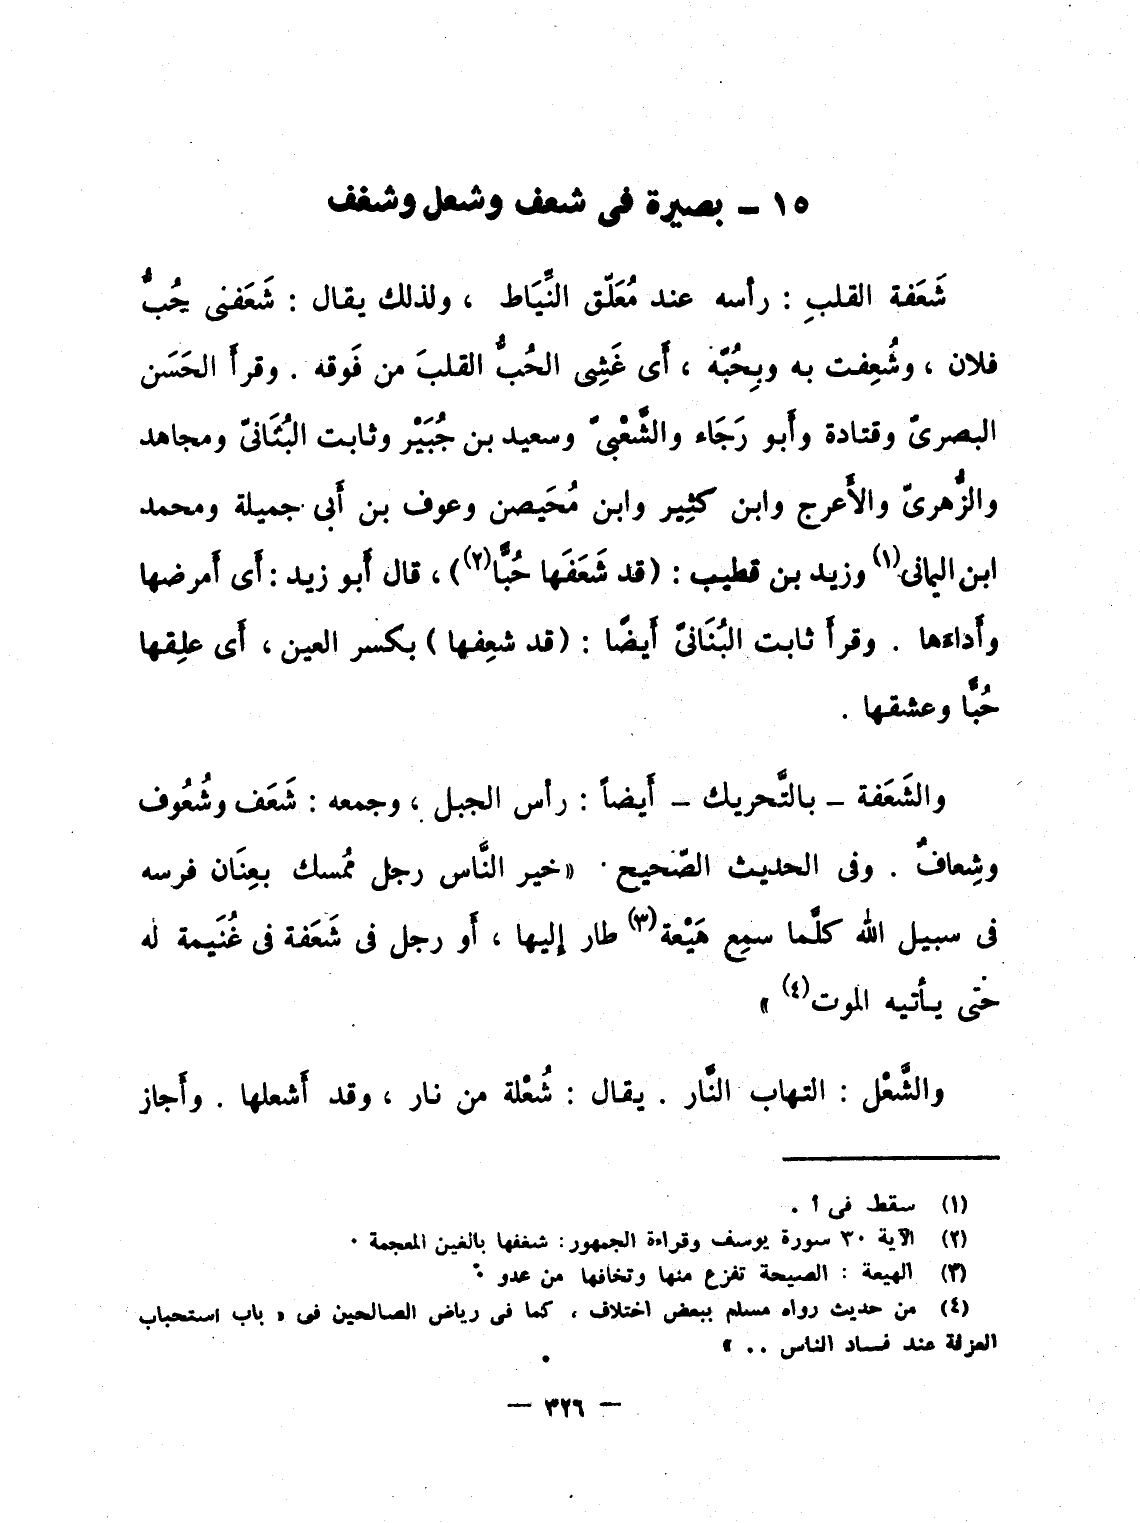 ١٥ ـ بصيرة فى شعف وشعل وشغف
شَعَفة القلبِ : رأسه عند مُعَلّق النِّيَاط ، ولذلك يقال : شَعَفنى حُبُّ
فلان ، وشُعِفت به وبِحُبّه ، أَى غَشِى الحُبُّ القلبَ من فَوقه . وقرأَ الحَسَن
البصرىّ وقتادة وأَبو رَجَاء والشَّعْبىّ وسعيد بن جُبَيْر وثابت البُنَانىّ ومجاهد
والزُّهرىّ والأَعرج وابن كثِير وابن مُحَيصن وعوف بن أَبى جميلة ومحمد
ابن اليمانى(١) وزيد بن قطيب : (قد شَعَفَها حُبًّا(٢)) ، قال أَبو زيد : أَى أَمرضها
وأَداءَها . وقرأَ ثابت البُنَانىّ أَيضًا : (قد شعِفها) بكسر العين ، أَى علِقها
حُبًّا وعشقها .
والشَعَفة ـ بالتَّحريك ـ أَيضاً : رأس الجبل ، وجمعه : شَعَف وشُعُوف
وشِعافٌ . وفى الحديث الصّحيح · «خير النَّاس رجل مُمسك بعِنَان فرسه
فى سبيل الله كلَّما سمِع هَيْعة(٣) طار إليها ، أَو رجل فى شَعَفة فى غُنَيمة له
حتى يأتيه الموت(٤) »
والشَّعْل : التهاب النَّار . يقال : شُعْلة من نار ، وقد أَشعلها . وأَجاز
(١) سقط فى أ .
(٢) الآية ٣٠ سورة يوسف وقراءة الجمهور : شغفها بالغين المعجمة ·
(٣) الهيعة : الصيحة تفزع منها وتخافها من عدو ·
(٤) من حديث رواه مسلم ببعض اختلاف ، كما فى رياض الصالحين فى « باب استحباب
العزلة عند فساد الناس .. »
— ٣٢٦ —